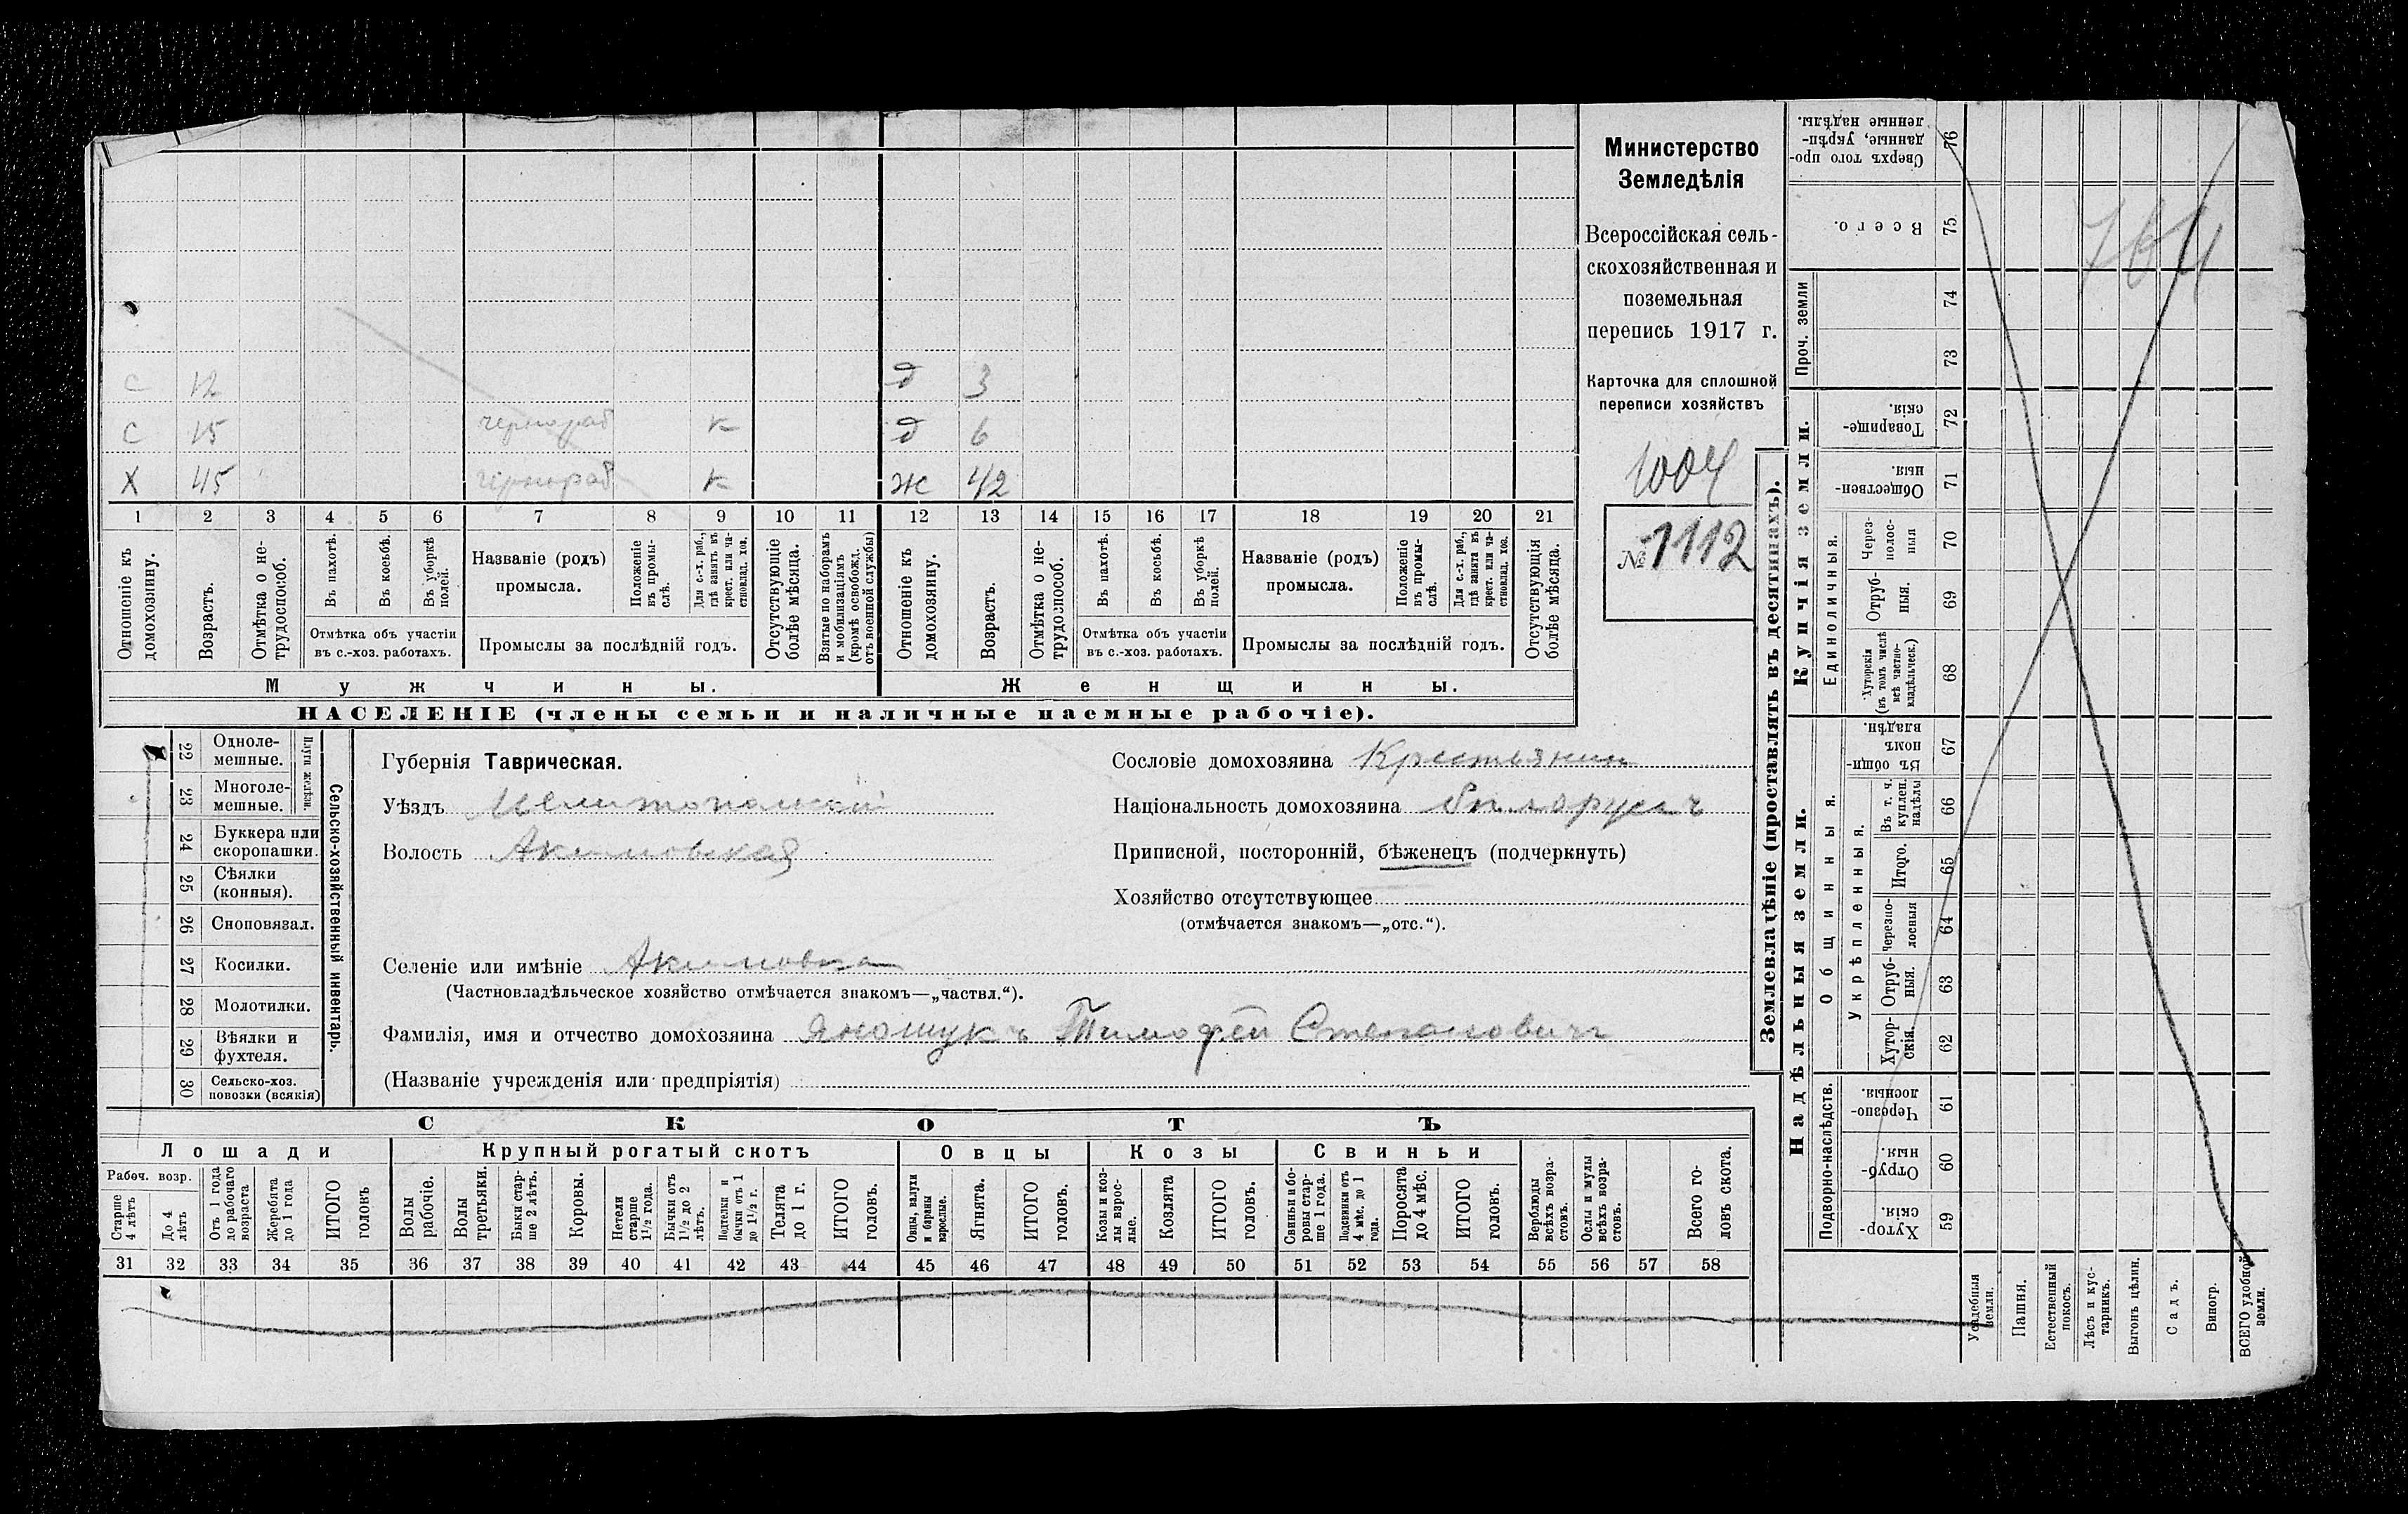 Министерство
Земледѣлія
Всероссійская сель-
скохозяйственная и
поземельная
перепись 1917 г.
Карточка для сплошной
переписи хозяйствъ
1004
№ 1112
с 12 д 3
с 15 чернораб к д 6
х 45 чернораб к ж 42
1 2 3 4 5 6 7 8 9 10 11 12 13 14 15 16 17 18 19 20 21
Отношеніе къ домохозяину.
Возрастъ.
Отмѣтка о не-трудоспособ.
Въ пахотѣ.
Въ косьбѣ.
Въ уборкѣ полей.
Отмѣтка объ участіи
въ с.-хоз. работахъ.
Названіе (родъ)
промысла.
Положеніе въ промы-слѣ.
Для с.-х. раб., гдѣ занятъ въ крест. или ча-стновлад. хоз.
Промыслы за послѣдній годъ.
Отсутствующіе болѣе мѣсяца.
Взятые по наборамъ и мобилизаціямъ (кромѣ освобожд. отъ военной службы)
Отношеніе къ домохозяину.
Возрастъ.
Отмѣтка о не-трудоспособ.
Въ пахотѣ.
Въ косьбѣ.
Въ уборкѣ полей.
Отмѣтка объ участіи
въ с.-хоз. работахъ.
Названіе (родъ)
промысла.
Положеніе въ промы-слѣ.
Для с.-х. раб., гдѣ занята въ крест. или ча-стновлад. хоз.
Промыслы за послѣдній годъ.
Отсутствующія болѣе мѣсяца.
Мужчины. Женщины.
НАСЕЛЕНІЕ (члены семьи и наличные наемные рабочіе).
Сельско-хозяйственный инвентарь.
Плуги желѣзн.
22 Одноле-мешные.
23 Многоле-мешные.
24 Буккера или скоропашки.
25 Сѣялки (конныя).
26 Сноповязал.
27 Косилки.
28 Молотилки.
29 Вѣялки и фухтеля.
30 Сельско-хоз. повозки (всякія)
Губернія Таврическая.
Уѣздъ Мелитопольскій
Волость Акимовская
Сословіе домохозяина Крестьянин
Національность домохозяина бѣлорусъ
Приписной, посторонній, бѣженецъ (подчеркнуть)
Хозяйство отсутствующее
(отмѣчается знакомъ—„отс.“).
Селеніе или имѣніе Акимовка
(Частновладѣльческое хозяйство отмѣчается знакомъ—„частвл.“).
Фамилія, имя и отчество домохозяина Яношукъ Тимофей Степановичъ
(Названіе учрежденія или предпріятія)
СКОТЪ
Лошади Крупный рогатый скотъ Овцы Козы Свиньи
Рабоч. возр.
Старше 4 лѣтъ
До 4 лѣтъ
Отъ 1 года до рабочаго возраста
Жеребята до 1 года
ИТОГО головъ
Волы рабочіе.
Волы третьяки.
Быки стар-ше 2 лѣтъ.
Коровы.
Нетели старше 1½ года.
Бычки отъ 1½ до 2 лѣтъ.
Подтелки и бычки отъ 1 до 1½ г.
Телята до 1 г.
ИТОГО головъ.
Овцы, валухи и бараны взрослые.
Ягнята.
ИТОГО головъ.
Козы и коз-лы взрос-лые.
Козлята
ИТОГО головъ.
Свиньи и бо-ровы стар-ше 1 года.
Подсвинки отъ 4 мѣс. до 1 года.
Поросята до 4 мѣс.
ИТОГО головъ.
Верблюды всѣхъ возра-стовъ.
Ослы и мулы всѣхъ возра-стовъ.
Всего го-ловъ скота.
31 32 33 34 35 36 37 38 39 40 41 42 43 44 45 46 47 48 49 50 51 52 53 54 55 56 57 58
Землевладѣніе (проставлять въ десятинахъ).
Купчія земли.
Надѣльныя земли.
Сверхъ того про-данные, укрѣп-ленные надѣлы. 76
Всего. 75
Проч. земли
74
73
Товарище-скія. 72
Обществен-ныя. 71
Единоличныя.
Через-полос-ныя 70
Отруб-ныя. 69
Хуторскія (въ томъ числѣ всѣ частно-владѣльческ.) 68
Общинныя.
Въ общи-номъ владѣн. 67
Укрѣпленныя.
Въ т. ч. куплен. надѣлы 66
Итого. 65
Черезпо-лосныя 64
Отруб-ныя. 63
Хутор-скія. 62
Подворно-наслѣдств.
Черезпо-лосныя. 61
Отруб-ныя. 60
Хутор-скія. 59
Усадебныя земли.
Пашня.
Естественный покосъ.
Лѣсъ и кус-тарникъ.
Выгонъ цѣлин.
Садъ.
Виногр.
ВСЕГО удобной земли.